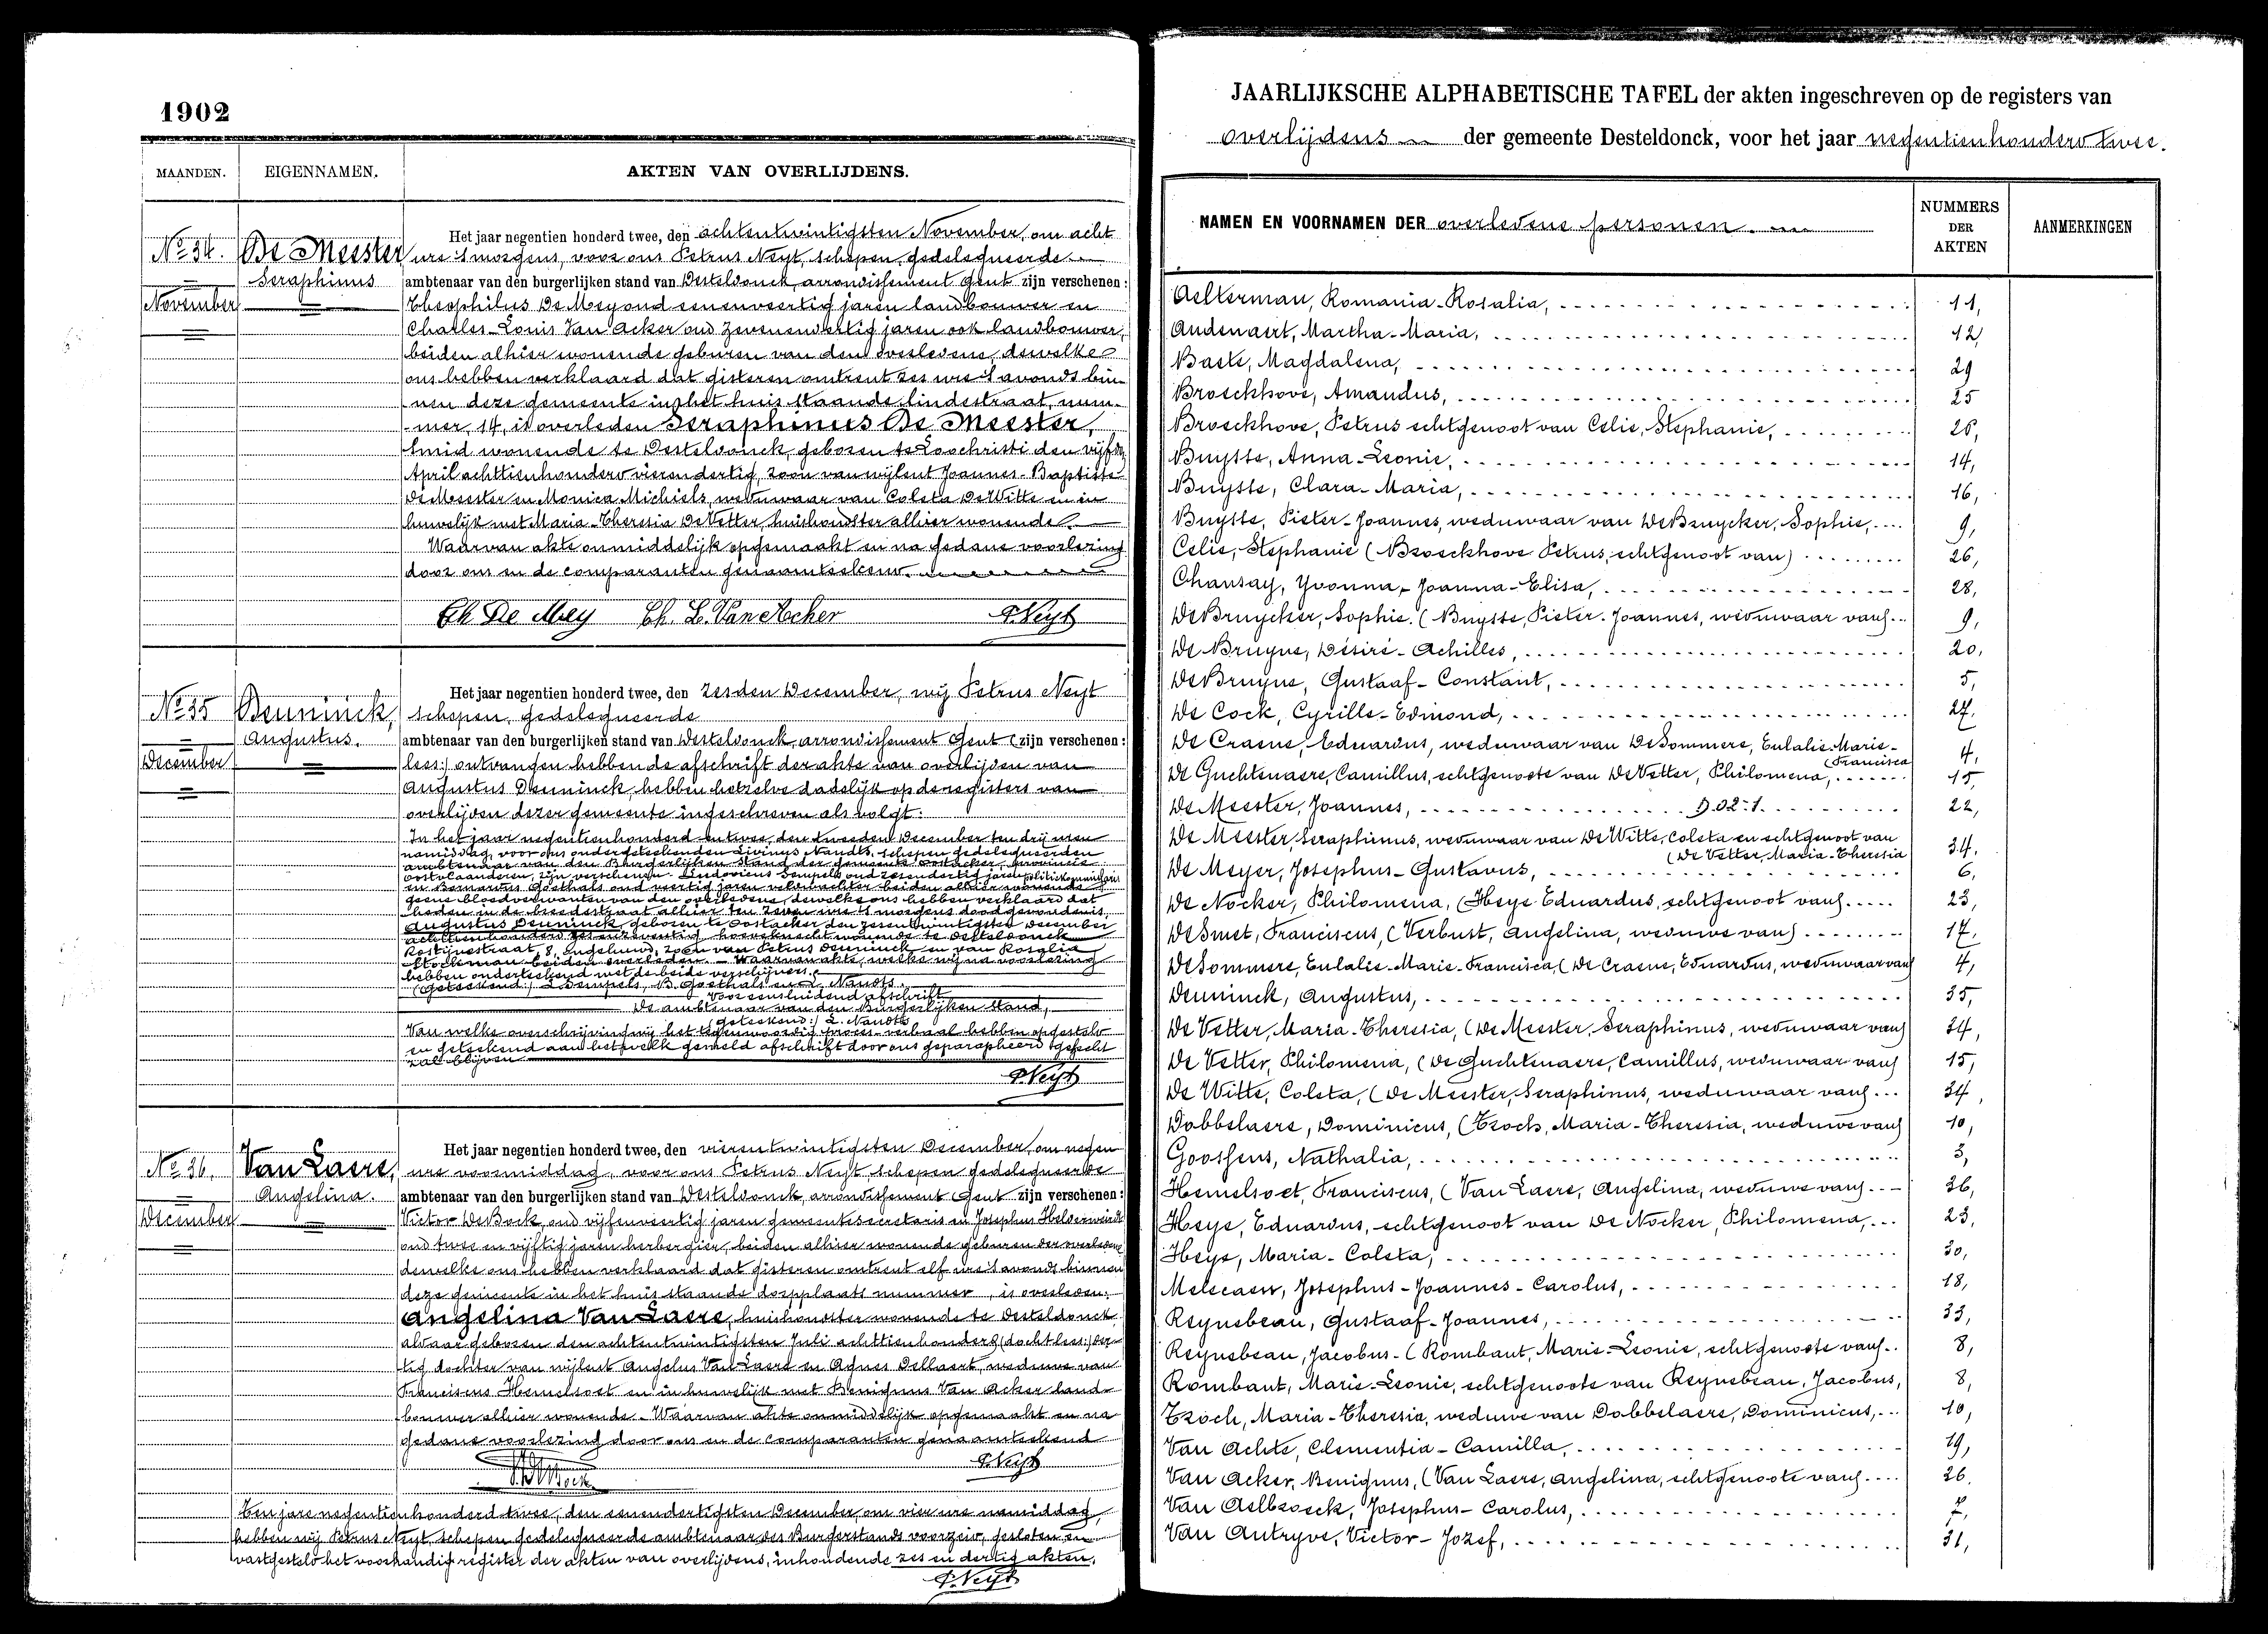 1902
MAANDEN. EIGENNAMEN. AKTEN VAN OVERLIJDENS.
No 34. De Meester Seraphinus
November
Het jaar negentien honderd twee, den achtentwintigsten November, om acht
ure 's morgens, voor ons Petrus Neyt, schepen, gedelegueerde
ambtenaar van den burgerlijken stand van Desteldonck, arrondissement Gent zijn verschenen:
Theophilus De Mey oud eenenveertig jaren landbouwer en
Charles-Louis Van Acker oud zevenendertig jaren ook landbouwer,
beiden alhier wonende geburen van den overledene, dewelke
ons hebben verklaard dat gisteren omtrent zes ure 's avonds bin-
nen deze gemeente in het huis staande lindestraat, num-
mer, 14, is overleden Seraphinus De Meester,
smid wonende te Desteldonck, geboren te Loochristi den vijfden
April achttienhonderd vierendertig, zoon van wijlent Joannes-Baptiste
De Meester en Monica Michiels, weduwaar van Coleta De Witte en in
huwelijk met Maria-Theresia De Vetter, huishoudster alhier wonende.
Waarvan akte onmiddelijk opgemaakt en na gedane voorlezing
door ons en de comparanten genaamteekend.
Th De Mey Ch. L. Van Acker P. Neyt
No 35 Deuninck, Augustus.
December
Het jaar negentien honderd twee, den zesden December, wij Petrus Neyt
schepen, gedelegueerde
ambtenaar van den burgerlijken stand van Desteldonck, arrondissement Gent (zijn verschenen:
lees:) ontvangen hebbende afschrift der akte van overlijden van
Augustus Deuninck, hebben hetzelve dadelijk op de registers van
overlijden dezer gemeente ingeschreven als volgt:
In het jaar negentienhonderd en twee, den tweeden December ten drij uren
namiddag, voor ons ondergeteekenden Livinus Naudts, schepen gedelegueerden
ambtenaar van den Burgerlijken stand der gemeente Oostacker, provincie
Oostvlaanderen, zijn verschenen: Ludovicus Sempels oud zesendertig jaren politiekommissaris
en Bernardus Goethals oud veertig jaren veldwachter beiden alhier wonende
geene bloedverwanten van den overledene, dewelke ons hebben verklaard dat
heden in de breedestraat alhier ten zeven ure 's morgens doodgevonden is,
Augustus Deuninck, geboren te Oostacker den zesentwintigsten December
achttienhonderd zesenzeventig, hoveknecht wonende te Desteldonck
Rostijnestraat, 8, ongehuwd, zoon van Petrus Deuninck en van Rosalia
beiden overleden. - Waarvan akte, welke wij na voorlezing
hebben onderteekend met de beide verschijners.
(Geteekend:) L Sempels, B. Goethals en L. Naudts.
Voor eensluidend afschrift
De ambtenaar van den Burgerlijken stand,
(geteekend:) L. Naudts
Van welke overschrijving wij het tegenwoordig proces-verbaal hebben opgesteld
en geteekend aan hetwelk gemeld afschrift door ons geparapheerd gehecht
zal blijven.
P. Neyt
No 36. Van Laere, Angelina.
December
Het jaar negentien honderd twee, den vierentwintigsten December, om negen
ure voormiddag, voor ons Petrus Neyt, schepen gedelegueerde
ambtenaar van den burgerlijken stand van Desteldonck, arrondissement Gent zijn verschenen:
Victor De Bock, oud vijfenveertig jaren gemeentesecretaris en Josephus Helderweirdt
oud twee en vijftig jaren herbergier, beiden alhier wonende geburen der overledene
dewelke ons hebben verklaard dat gisteren omtrent elf ure 's avonds binnen
deze gemeente in het huis staande dorpplaats nummer , is overleden:
Angelina Van Laere, huishoudster wonende te Desteldonck
aldaar geboren den achtentwintigsten Juli achttienhonderd (docht lees:) der-
tig dochter van wijlent Angelus Van Laere en Agnes Dellaert, weduwe van
Franciscus Hemelsoet en in huwelijk met Benignus Van Acker land-
bouwer alhier wonende. Waarvan akte onmiddelijk opgemaakt en na
gedane voorlezing door ons en de comparanten genaamteekend
P. Neyt
Ten jare negentienhonderd twee, den eenendertigsten December, om vier ure namiddag,
hebben wij Petrus Neyt, schepen gedelegueerde ambtenaar des Burgerstands voorzeid, gesloten en
vastgesteld het voorhandig register der akten van overlijdens, inhoudende zes en dertig akten.
P. Neyt
JAARLIJKSCHE ALPHABETISCHE TAFEL der akten ingeschreven op de registers van
overlijdens der gemeente Desteldonck, voor het jaar negentienhonderd twee.
NAMEN EN VOORNAMEN DER overledene personen. NUMMERS DER AKTEN AANMERKINGEN
Aelterman, Romania-Rosalia, 11,
Audenaert, Martha-Maria, 12,
Baele, Magdalena, 29
Broeckhove, Amandus, 25
Broeckhove, Petrus echtgenoot van Celie, Stephanie, 26,
Buysse, Anna-Leonie, 14,
Buysse, Clara-Maria, 16,
Buysse, Pieter-Joannes, weduwaar van De Bruycker, Sophie, 9,
Celie, Stephanie (Broeckhove Petrus, echtgenoot van) 26,
Chansay, Yvonna-Joanna-Elisa, 28,
De Bruycker, Sophie. (Buysse, Pieter-Joannes, weduwaar van) 9,
De Bruyne, Désiré-Achilles, 20,
De Bruyne, Gustaaf-Constant, 5,
De Cock, Cyrille-Edmond, 27.
De Craene, Eduardus, weduwaar van De Sommere, Eulalie-Marie-
(Francisca 4,
De Guchtenaere, Camillus, echtgenoote van De Vetter, Philomena, 15,
De Meester, Joannes, D.02-1. 22,
De Meester, Seraphinus, weduwaar van De Witte, Coleta en echtgenoot van
(De Vetter, Maria-Theresia 34.
De Meyer, Josephus-Gustavus, 6,
De Nocker, Philomena, (Heye Eduardus, echtgenoot van) 23,
De Smet, Franciscus, (Verbust, Angelina, weduwe van) 17.
De Sommere, Eulalie-Marie-Francisca, (De Craene, Eduardus, weduwaar van) 4,
Deuninck, Augustus, 35,
De Vetter, Maria-Theresia, (De Meester, Seraphinus, weduwaar van) 34,
De Vetter, Philomena, (De Guchtenaere, Camillus, weduwaar van) 15,
De Witte, Coleta, (De Meester, Seraphinus, weduwaar van) 34,
Dobbelaere, Dominicus, (Tzoch, Maria-Theresia, weduwe van) 10,
Goossens, Nathalia, 3,
Hemelsoet, Franciscus, (Van Laere, Angelina, weduwe van) 36,
Heye, Eduardus, echtgenoot van De Nocker, Philomena, 23,
Heye, Maria-Coleta, 30,
Melecaew, Josephus-Joannes-Carolus, 18,
Reynebeau, Gustaaf-Joannes, 33,
Reynebeau, Jacobus-(Rombaut, Marie-Leonie, echtgenoote van) 8,
Rombaut, Marie-Leonie, echtgenoote van Reynebeau, Jacobus, 8,
Tzoch, Maria-Theresia, weduwe van Dobbelaere, Dominicus, 10,
Van Achte, Clementia-Camilla, 19,
Van Acker, Benignus, (Van Laere, Angelina, echtgenoote van) 26.
Van Aelbroeck, Josephus-Carolus, 7,
Van Autryve, Victor-Jozef, 31,